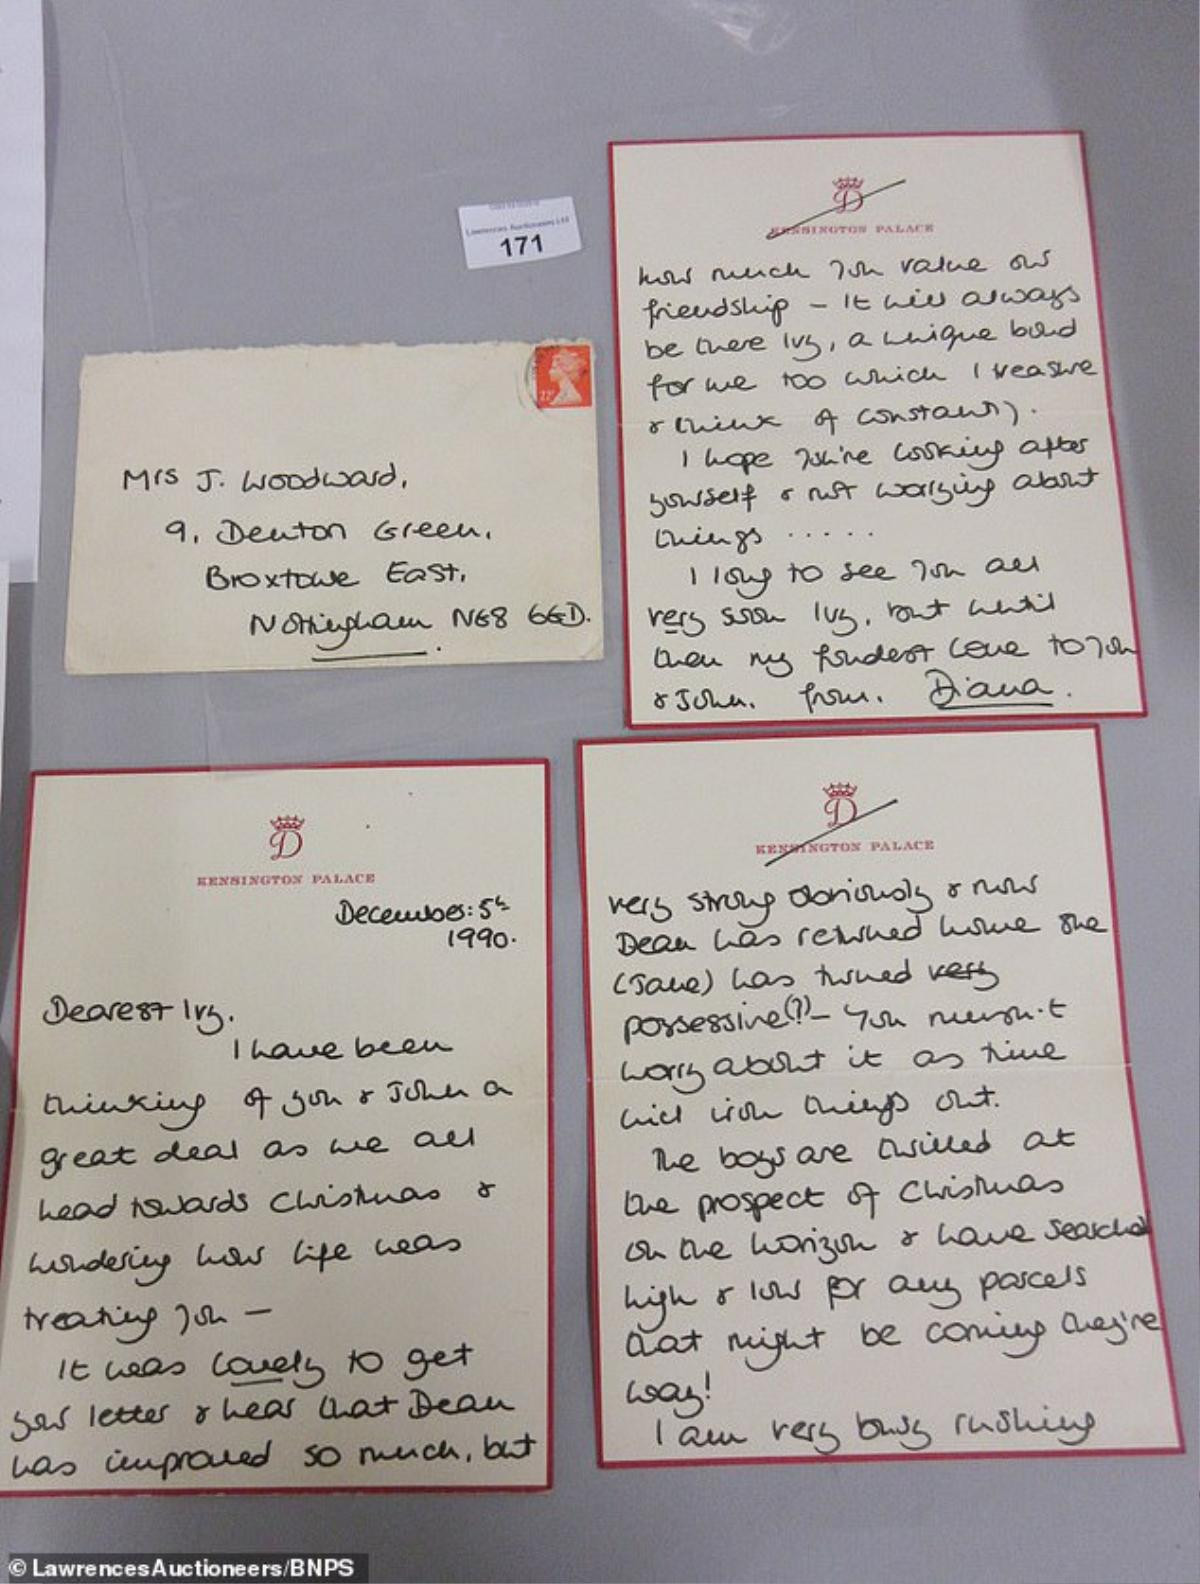 Lawrences Auctioneers Ltd
171
Mrs J. Woodward,
9, Denton Green,
Broxtowe East,
Nottingham NG8 6GD.
D
KENSINGTON PALACE
December: 5th
1990.
Dearest Ivy,
I have been
thinking of you & John a
great deal as we all
head towards Christmas &
wondering how life was
treating you —
It was lovely to get
your letter & hear that Dean
has improved so much, but
D
KENSINGTON PALACE
very strong obviously & now
Dean has returned home she
(Jane) has turned very
possessive(?) — You mustn't
worry about it as time
will iron things out.
The boys are thrilled at
the prospect of Christmas
on the horizon & have searched
high & low for any parcels
that might be coming they're
way!
I am very busy rushing
D
KENSINGTON PALACE
how much you value our
friendship – It will always
be there Ivy, a unique bond
for me too which I treasure
& think of constantly.
I hope you're looking after
yourself & not worrying about
things .....
I long to see you all
very soon Ivy, but until
then my fondest love to you
& John. from. Diana.
© LawrencesAuctioneers/BNPS